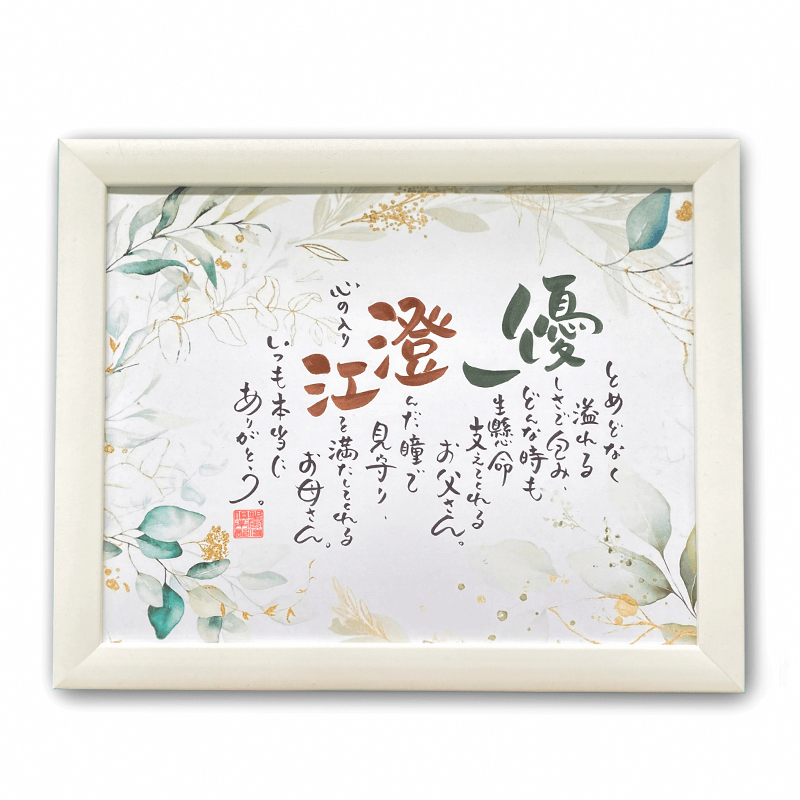 とめどなく
溢れる
優しさで包み、
どんな時も
一生懸命
支えてくれる
お父さん。
澄んだ瞳で
見守り、
心の入り
江を満たしてくれる
お母さん。
いつも本当に
ありがとう。